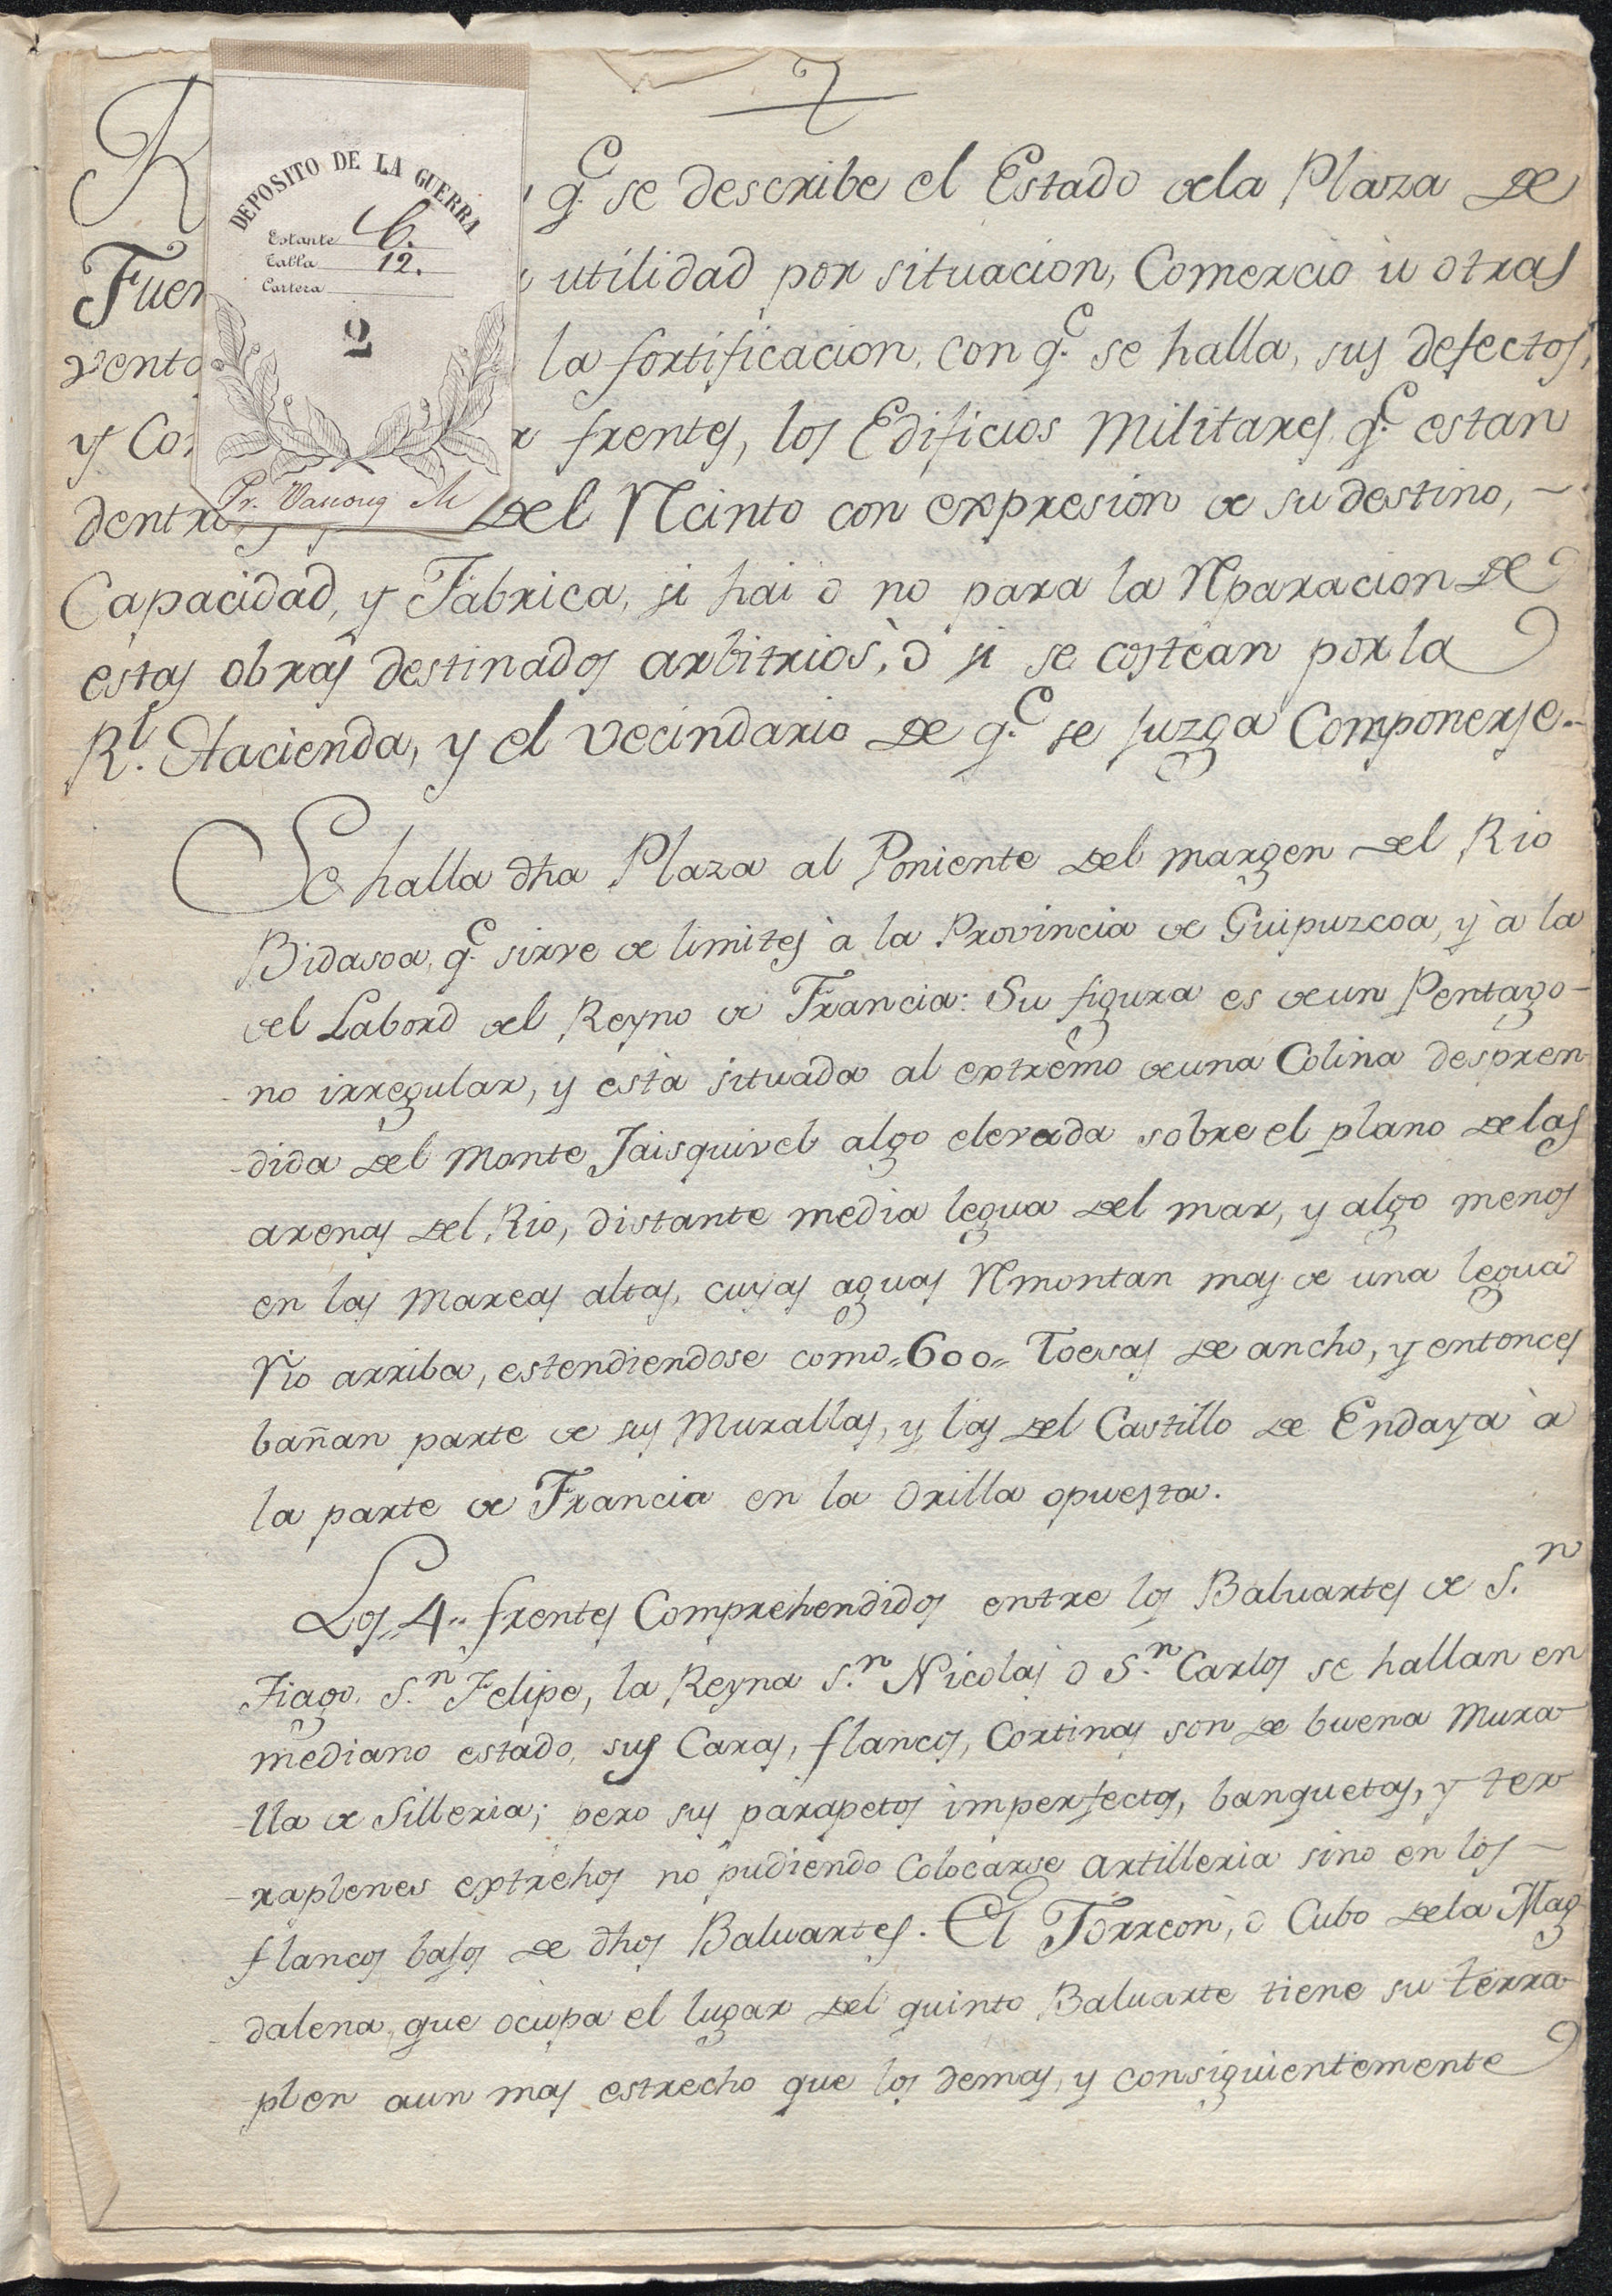 DEPOSITO DE LA GUERRA
Estante C.
Tabla 12.
Cartera
2
R q.e se describe el Estado de la Plaza de
Fuen utilidad por situacion, Comercio ù otras
venta la fortificacion, con q.e se halla, sus defectos,
y Co frentes, los Edificios Militares q.e estan
dentro del Recinto con expresion de su destino,
Capacidad, y Fabrica, si hai o no para la Reparacion de
estas obras destinados arbitrios, ò si se costean por la
R.l Hacienda, y el vecindario de q.e se juzga Componerse.
Se halla dha Plaza al Poniente del margen del Rio
Bidasoa, q.e sirve de limites à la Provincia de Guipuzcoa, y à la
del Labord del Reyno de Francia: Su figura es de un Pentago-
no irregular, y està situada al extremo de una Colina despren-
-dida del Monte Jaisquivel algo elevada sobre el plano de las
arenas del Rio, distante media legua del mar, y algo menos
en las Mareas altas, cuyas aguas Remontan mas de una legua
Rio arriba, estendiendose como 600 Toesas de ancho, y entonces
bañan parte de sus Murallas, y las del Castillo de Endaya à
la parte de Francia en la Orilla opuesta.
Los 4 frentes Comprehendidos entre los Baluartes de S.n
Tiago, S.n Felipe, la Reyna S.n Nicolas o S.n Carlos se hallan en
mediano estado, sus Caras, flancos, Cortinas son de buena Mura
-lla de Silleria; pero sus parapetos imperfectos, banquetas, y ter
-raplenes extrehos no pudiendo Colocarse artilleria sino en los
flancos bajos de dhos Baluartes. El Torreon, ò Cubo de la Mag
dalena, que ocupa el lugar del quinto Baluarte tiene su terra
plen aun mas estrecho que los demas, y consiguientemente